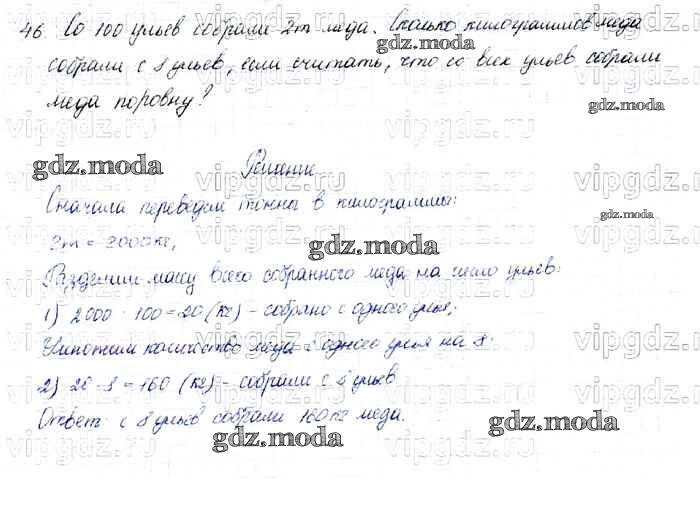 46. Со 100 ульев собрали 2т меда. Сколько килограммов меда
собрали с 8 ульев, если считать, что со всех ульев собрали
меда поровну?
Решение
Сначала переведем тонны в килограммы:
2т = 2000кг,
Разделим массу всего собранного меда на число ульев:
1) 2000 : 100 = 20 (кг) - собрано с одного улья;
Умножим количество меда с одного улья на 8:
2) 20 · 8 = 160 (кг) - собрали с 8 ульев
Ответ: с 8 ульев собрали 160 кг меда.
gdz.moda
gdz.moda
gdz.moda
gdz.moda
gdz.moda
gdz.moda
gdz.moda
gdz.moda
vipgdz.ru